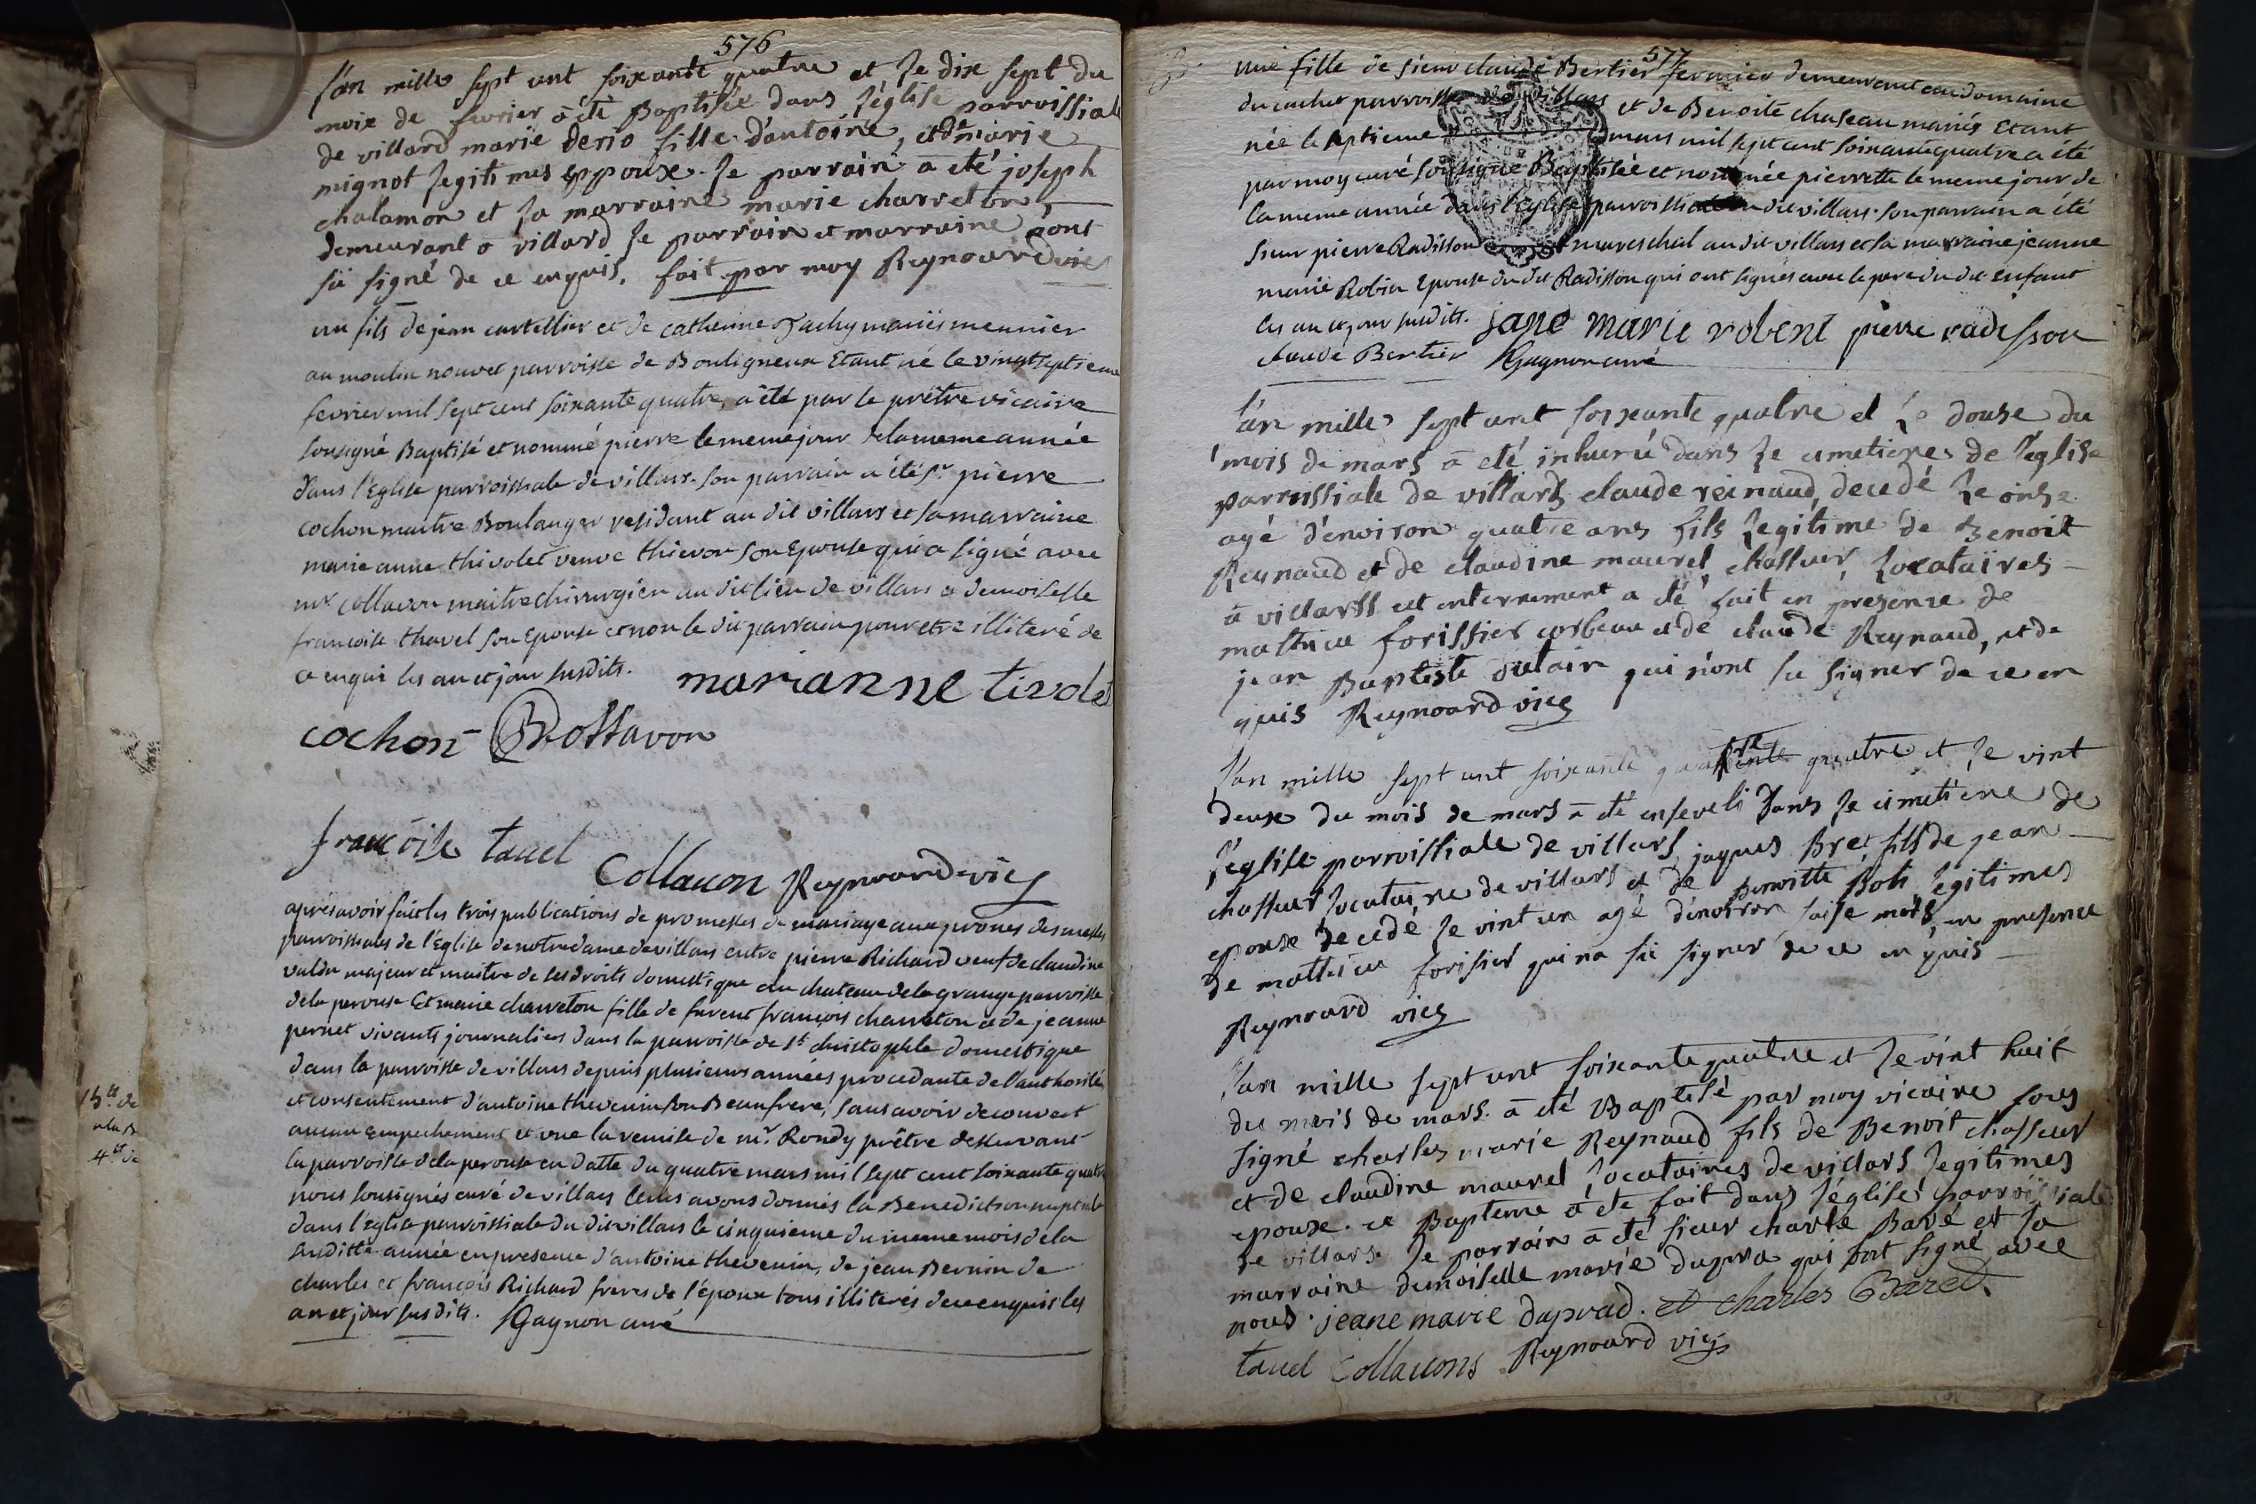 576
l'an mille sept cent soixante quatre et le dix sept du
mois de fevrier a été Baptisée dans l'église parroissiale
de villard marie derio fille d'antoine, et de marie
mignot legitimes eppoux. le parrain a été joseph
chalamon et la marraine marie charreton
demeurant a villard le parrain et marraine n'ont
sü signé de ce enquis. fait par moy Reynoard vic
un fils de jean cartellier et de catherine Jachy mariés meunier
au moulin nouvet parroisse de Bouligneux Etant né le vingt septieme
fevrier mil sept cent soixante quatre, a été par le prêtre vicaire
sousigné Baptisé et nommé pierre le meme jour de la meme année
dans l'Eglise parroissiale de villars. son parrain a été Sr. pierre
cochon maitre Boulanger residant au dit villars et sa marraine
marie anne thivolet veuve thievon son Epouse qui a signé avec
mr. collavon maitre chirurgien au dit lieu de villars et demoiselle
françoise thavel son Epouse et non le dit parrain pour etre illiteré de
ce enqui les an et jour susdits. marianne tivolet
cochon
francoise tavel
Collavon Reynoard vic
apres avoir fait les trois publications de promesses de mariage aux prones des messes
parroissiales de l'Eglise de notre dame de villars entre pierre Richard veuf de claudine
valdu majeur et maitre de ses droits domestique au chateau de la grange parroisse
de la perouse Et marie charreton fille de furent françois charreton et de jeanne
pernet vivants journaliers dans la parroisse de St. christophle domestique
dans la parroisse de villars depuis plusieurs années procedante de l'authorité
et consentement d'antoine thevenin son Beaufrere, sans avoir decouvert
aucun Empechement et vue la remise de mr. Rondy prêtre desservant
la parroisse de la perouse en datte du quatre mars mil sept cent soixante quatre
nous sousignés curé de villars leurs avons donnés la Benediction nuptiale
dans l'Eglise parroissiale du dit villars le cinquieme du meme mois de la
susditte année en presence d'antoine thevenin, de jean Bernin de
charles et françois Richard freres de l'époux tous illiterés de ce enquis les
an et jour susdits. Gagnon curé
577
une fille de sieur claude Bertier fermier demeurant au domaine
du cachet parroisse de villars et de Benoite chaseau mariés Etant
née le septieme mars mil sept cent soixante quatre a été
par moy curé sousigné Baptisée et nommée pierrette le meme jour de
la meme année dans l'Eglise parroissiale du dit villars. son parrain a été
sieur pierre Radisson mareschal au dit villars et sa marraine jeanne
marie Robin Epouse du dit Radisson qui ont signés avec le pere du dit enfant
les an et jour susdits. jane marie robent pierre radisson
claude Bertier Gagnon curé
l'an mille sept cent soixante quatre et le douse du
mois de mars a été inhumé dans le cimetiere de l'église
parrossiale de villards claude reinaud, decedé le onse
agé d'environ quatre ans fils legitime de Benoit
Reynaud et de claudine maurel chasseur locataires
a villards cet enterrement a été fait en presence de
mattieu forissier corbeau et de claude Reynaud, et de
jean Baptiste oulair qui n'ont su signer de ce en
quis Reynoard vic
l'an mille sept cent soixante quatre et le vint
deux du mois de mars a été enseveli dans le cimetiere de
l'église parroissiale de villars, jaques Bret fils de jean
chasseur locataire de villars et de Benoitte Bob legitimes
epoux decedé le vint un agé d'environ saise mois, en presence
de mattieu forisier qui na su signer de ce en quis
Reynoard vic
l'an mille sept cent soixante quatre et le vint huit
du mois de mars. a été Baptisé par moy vicaire sous
signé charles marie Reynaud fils de Benoit chasseur
et de claudine maurel, locataires de villars legitimes
epoux. ce Bapteme a été fait dans l'église parroissiale
de villars. le parrain a été sieur charle Baré et la
marraine demoiselle marie dupra qui ont signé avec
nous. jeane marie duprad. et charles Baret.
tavel Collavons Reynoard vic